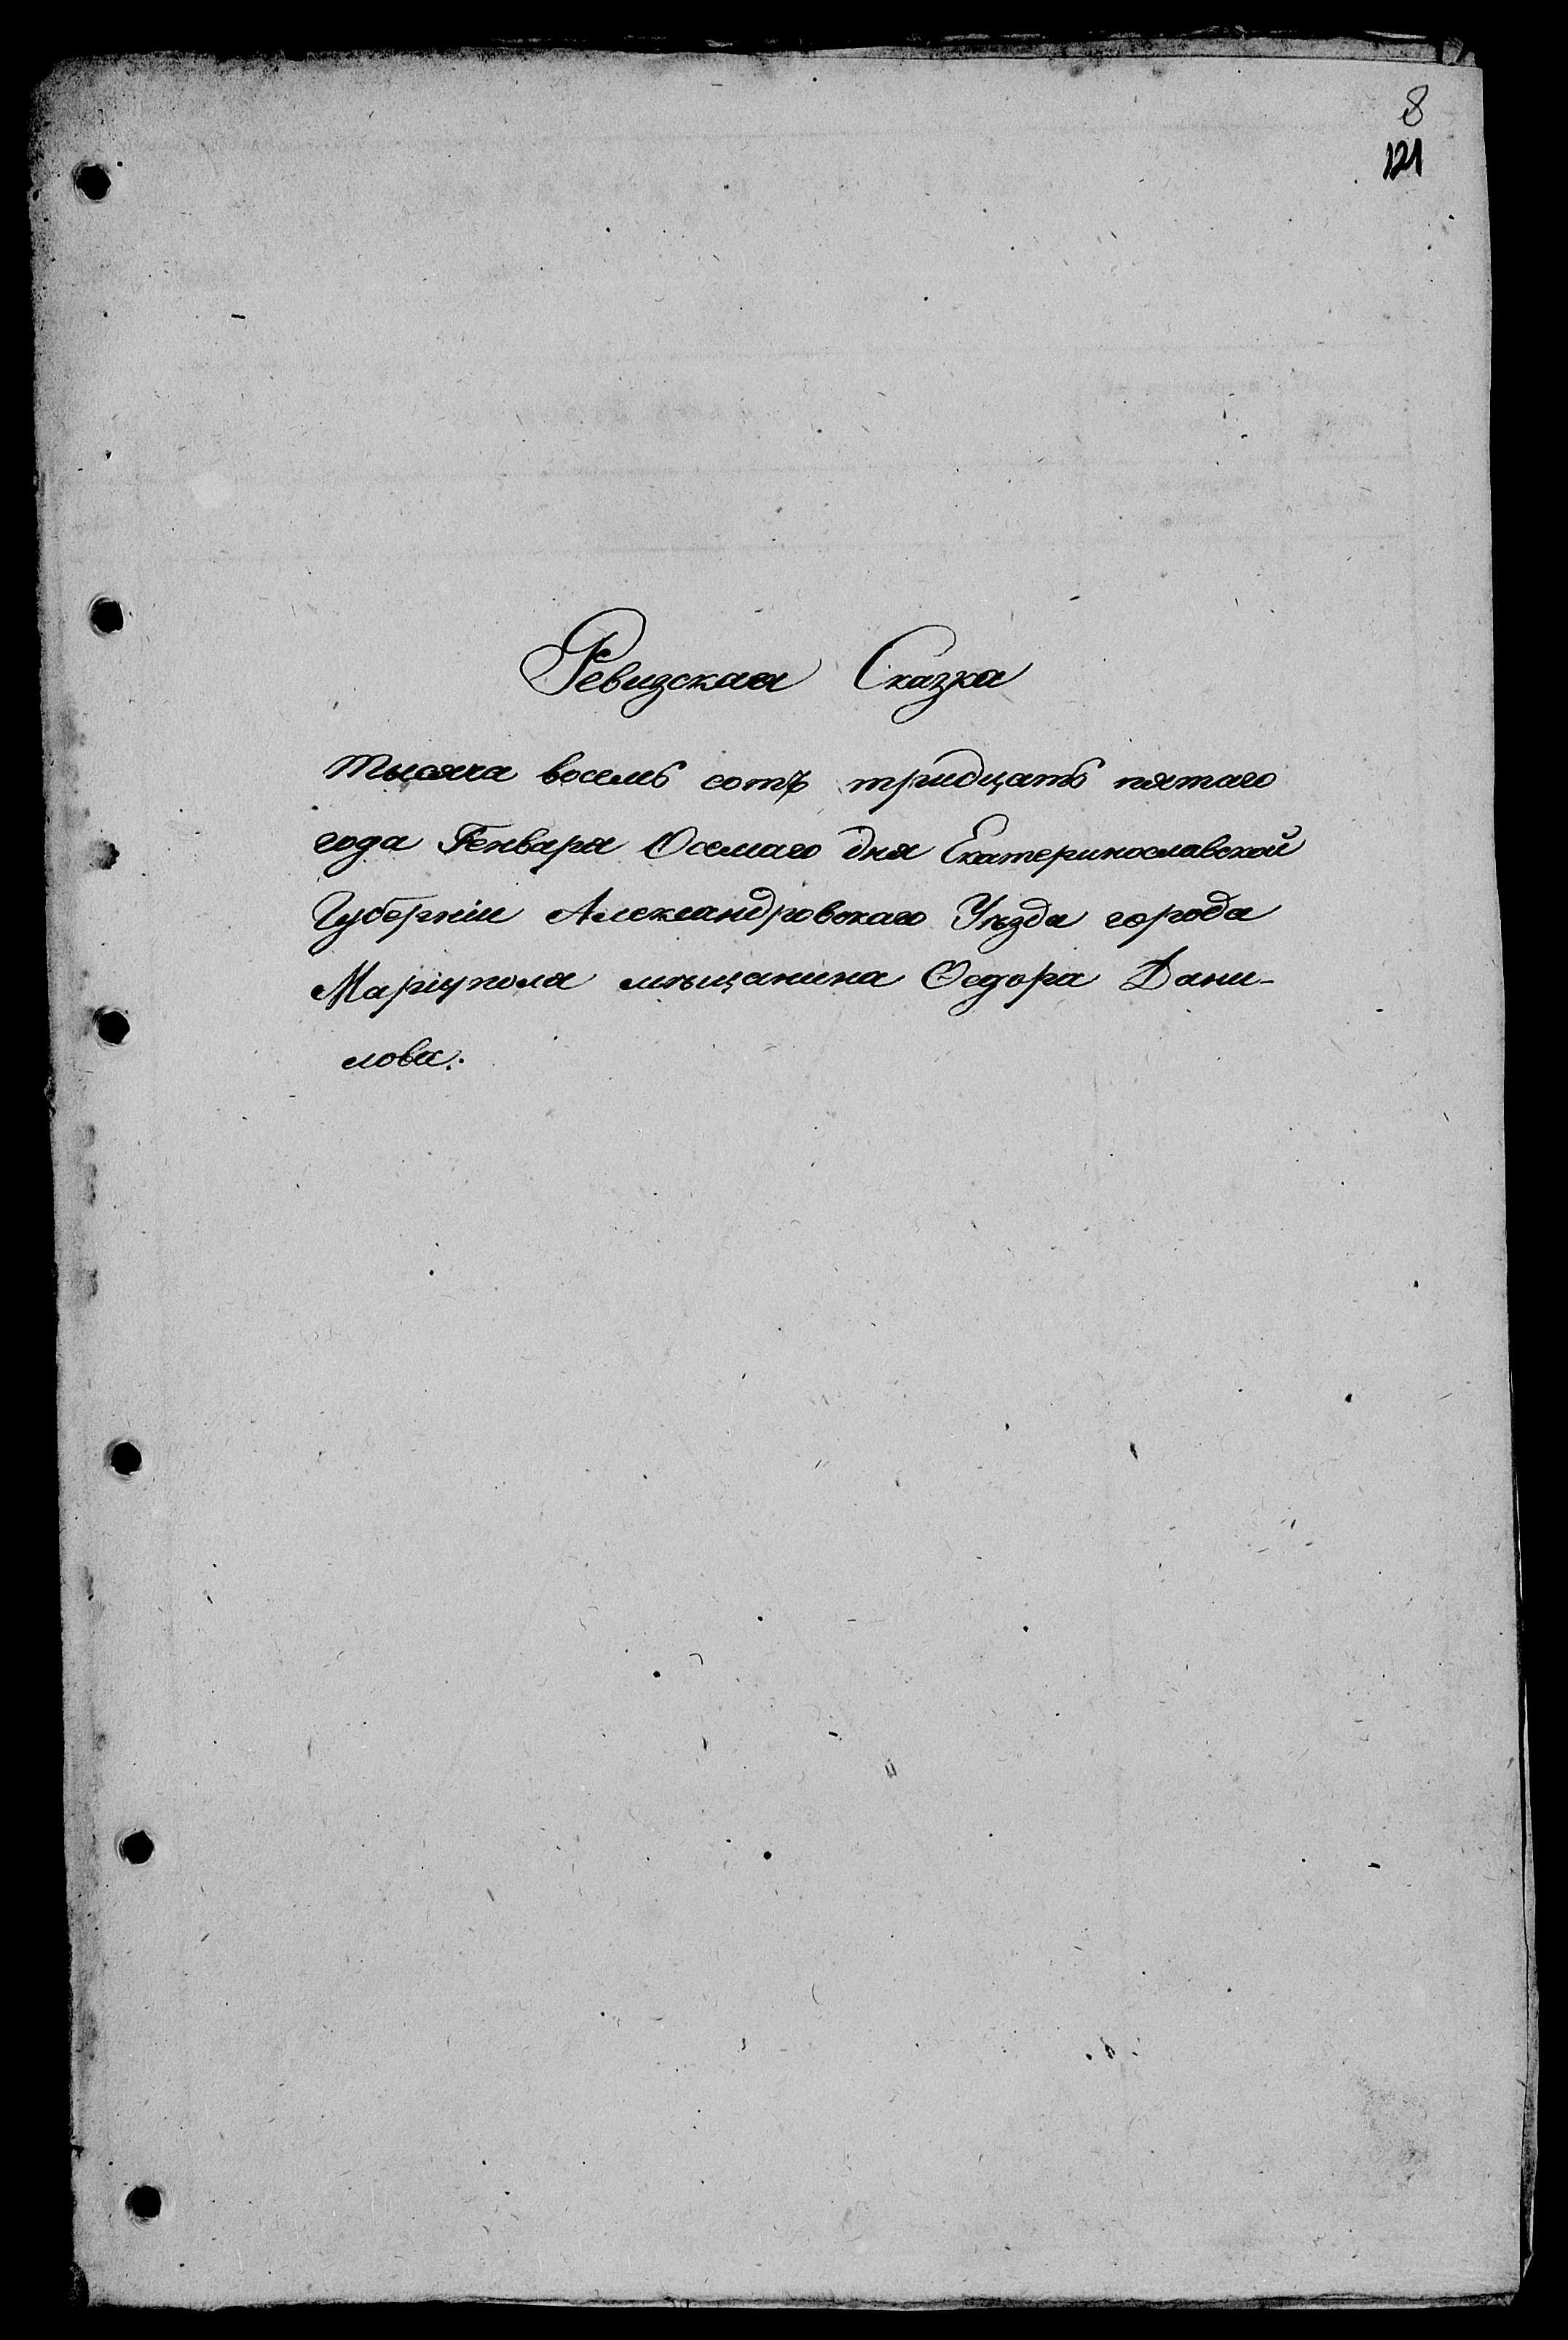 8
121
Ревизская Сказка
тысяча восемь сотъ тридцать пятаго
года Генваря Осемаго дня Екатеринославской
Губерніи Александровскаго Уѣзда города
Маріуполя мѣщанина Ѳедора Дани-
лова.